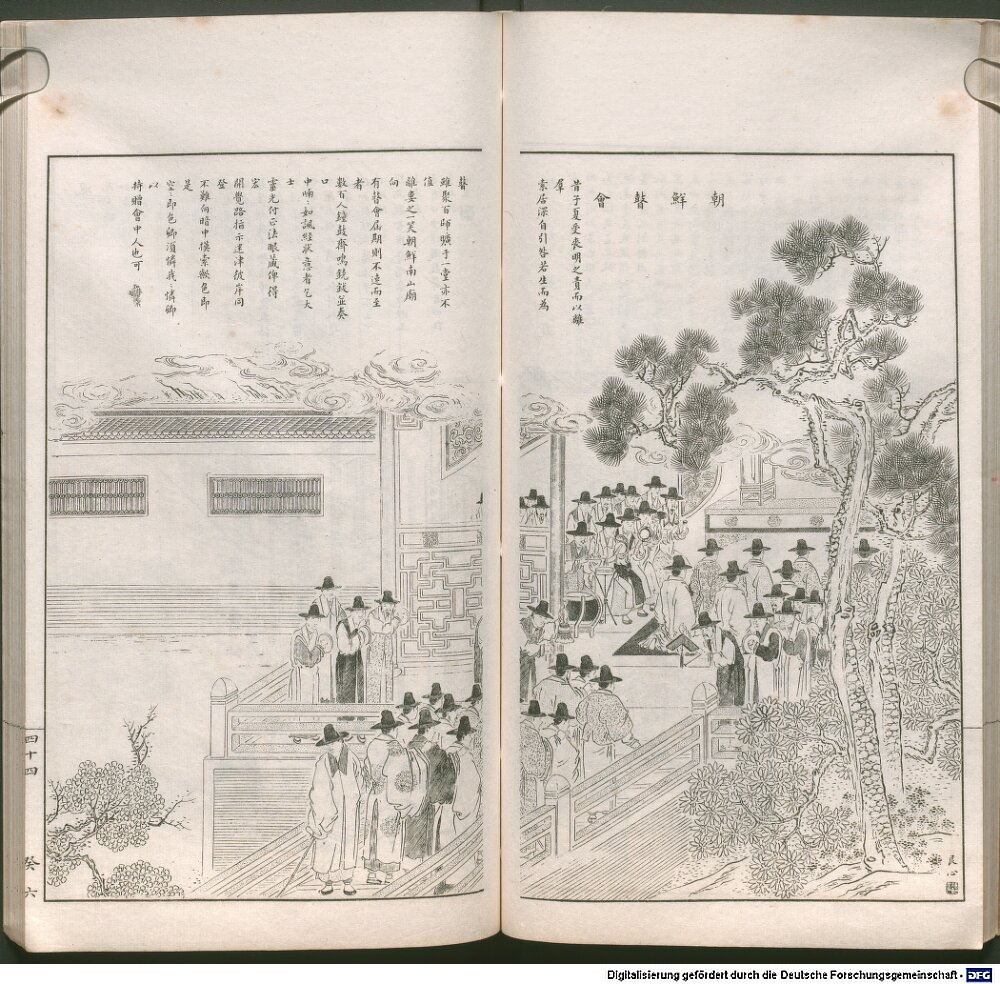 朝鮮瞽會
昔子夏受喪明之責而以離
羣
索居深自引咎若生而為
瞽
雖聚百師曠于一堂亦不
值
離婁之一笑朝鮮南山廟
向
有瞽會屆期則不遠而至
者
數百人鐘鼓齊鳴鐃鈸並奏
口
中喃〻如諷經狀意者乞大
士
靈光付正法眼藏俾得
宏
開覺路指示迷津彼岸同
登
不難向暗中摸索色即
是
空〻即色卿須憐我〻憐卿
以
持贈會中人也可
艮心
四十四
癸 六
Digitalisierung gefördert durch die Deutsche Forschungsgemeinschaft - DFG